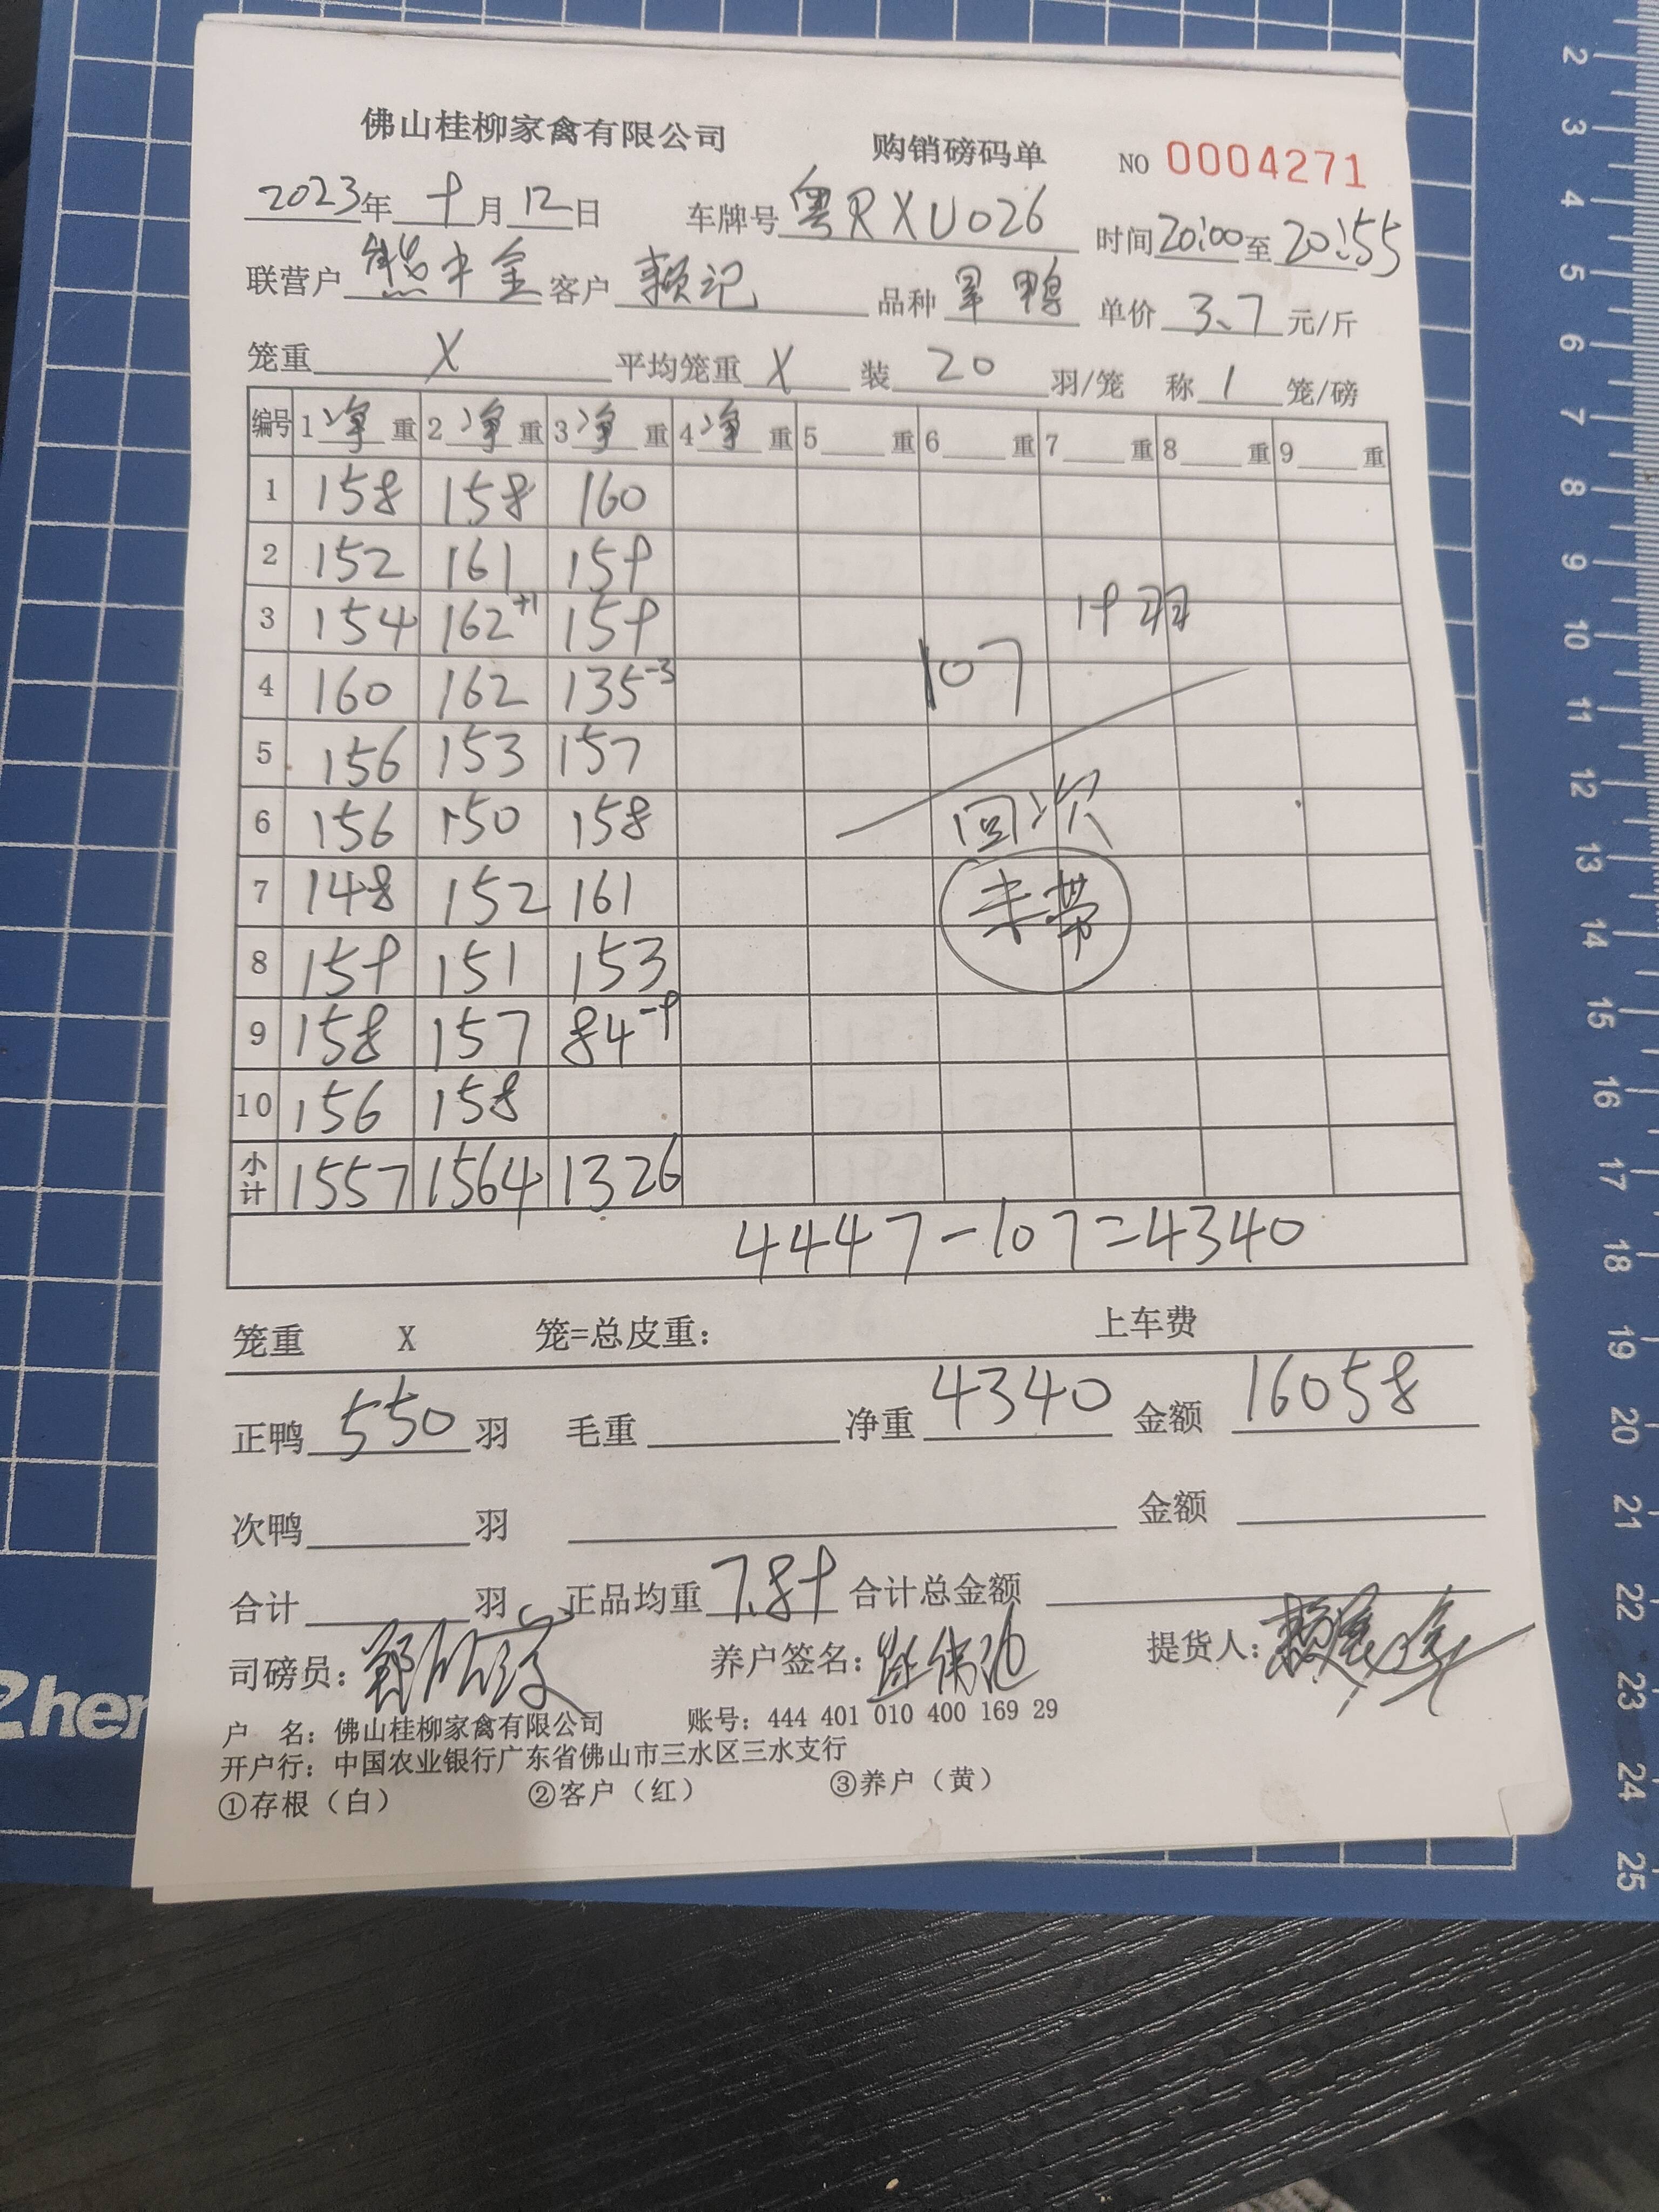 佛山桂柳家禽有限公司 购销磅码单 NO 0004271
2023年 9 月 12 日 车牌号 粤RXU026 时间 20:00 至 20:55
联营户 熊中金 客户 赖记 品种 鸭 单价 3.7 元/斤
笼重 X 平均笼重 X 装 20 羽/笼 称 1 笼/磅
编号 1 净 重 2 净 重 3 净 重 4 净 重 5 重 6 重 7 重 8 重 9 重
1 158 158 160
2 152 161 159
3 154 162+1 159 19羽
4 160 162 135-3 107
5 156 153 157
6 156 150 158 回次
7 148 152 161 未带
8 159 151 153
9 158 157 84-9
10 156 158
小计 1557 1564 1326
4447-107=4340
笼重 X 笼=总皮重: 上车费
正鸭 550 羽 毛重 净重 4340 金额 16058
次鸭 羽 金额
合计 羽 正品均重 7.89 合计总金额
司磅员: 养户签名: 提货人:
户 名: 佛山桂柳家禽有限公司 账号: 444 401 010 400 169 29
开户行: 中国农业银行广东省佛山市三水区三水支行
①存根（白） ②客户（红） ③养户（黄）
2
3
4
5
6
7
8
9
10
11
12
13
14
15
16
17
18
19
20
21
22
23
24
25